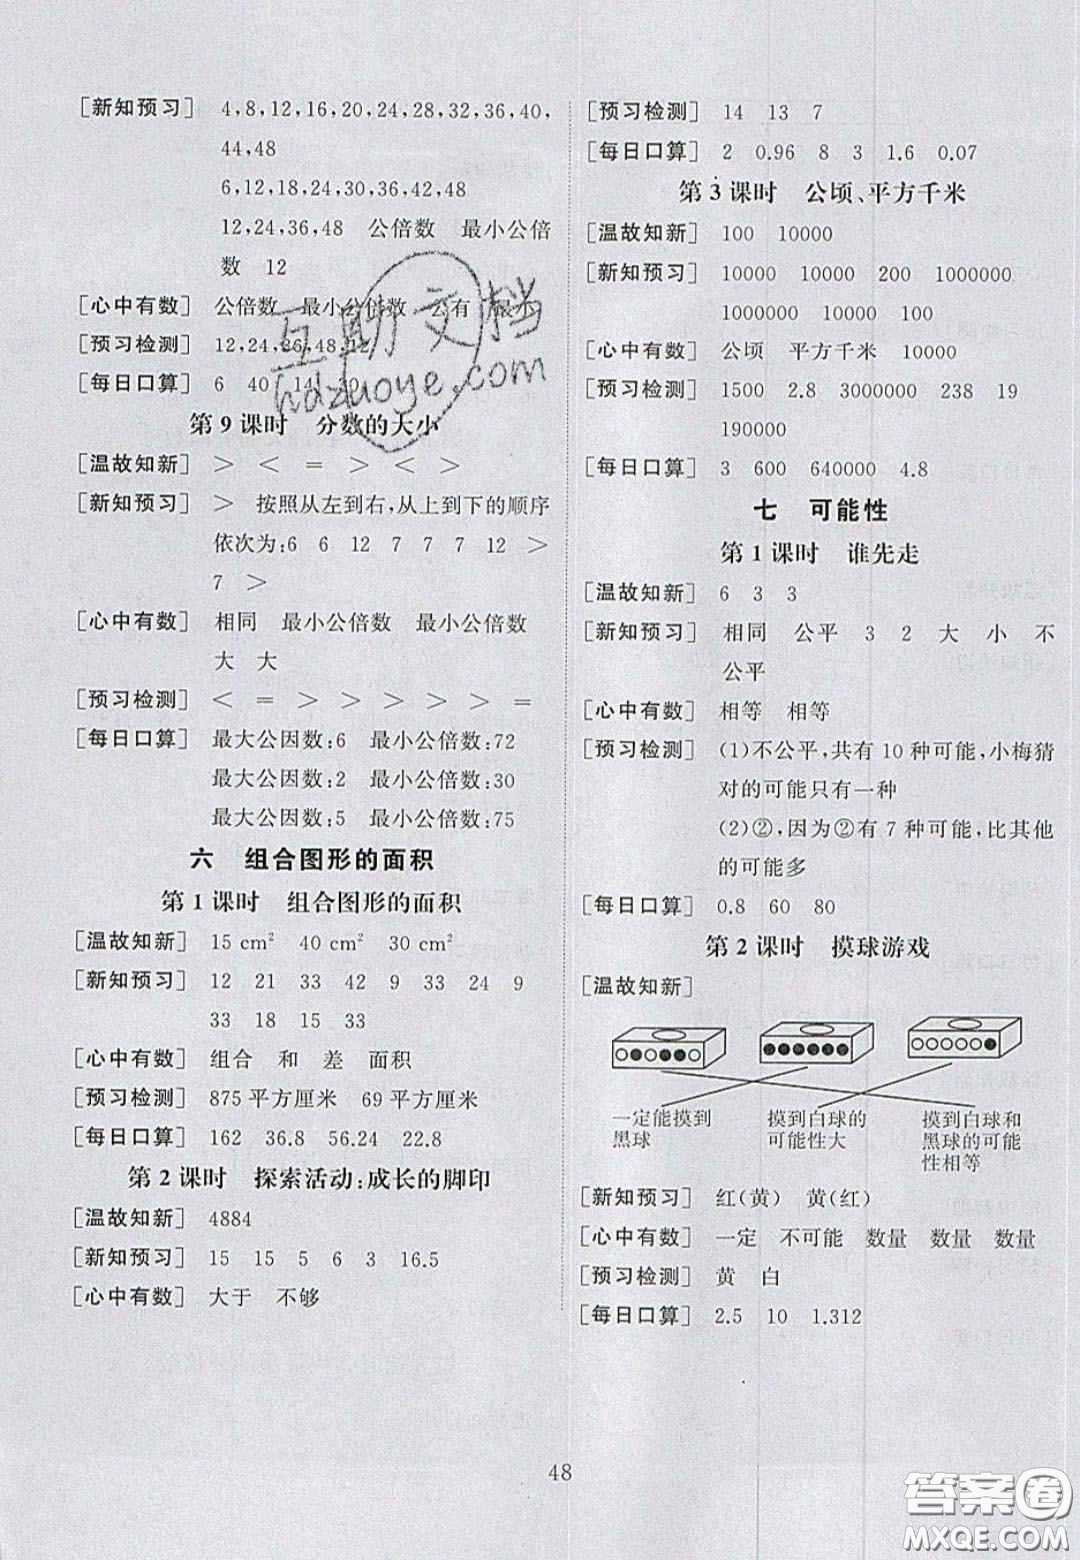 [新知预习] 4,8,12,16,20,24,28,32,36,40,
44,48
6,12,18,24,30,36,42,48
12,24,36,48 公倍数 最小公倍
数 12
[心中有数] 公倍数 最小公倍数 公有 最小
[预习检测] 12,24,36,48,12
[每日口算] 6 40 14
第 9 课时 分数的大小
[温故知新] > < = > < >
[新知预习] > 按照从左到右,从上到下的顺序
依次为:6 6 12 7 7 7 12 >
7 >
[心中有数] 相同 最小公倍数 最小公倍数
大 大
[预习检测] < = > > > > > =
[每日口算] 最大公因数:6 最小公倍数:72
最大公因数:2 最小公倍数:30
最大公因数:5 最小公倍数:75
六 组合图形的面积
第 1 课时 组合图形的面积
[温故知新] 15 cm² 40 cm² 30 cm²
[新知预习] 12 21 33 42 9 33 24 9
33 18 15 33
[心中有数] 组合 和 差 面积
[预习检测] 875 平方厘米 69 平方厘米
[每日口算] 162 36.8 56.24 22.8
第 2 课时 探索活动:成长的脚印
[温故知新] 4884
[新知预习] 15 15 5 6 3 3 16.5
[心中有数] 大于 不够
[预习检测] 14 13 7
[每日口算] 2 0.96 8 3 1.6 0.07
第 3 课时 公顷、平方千米
[温故知新] 100 10000
[新知预习] 10000 10000 200 1000000
1000000 10000 100
[心中有数] 公顷 平方千米 10000
[预习检测] 1500 2.8 3000000 238 19
190000
[每日口算] 3 600 640000 4.8
七 可能性
第 1 课时 谁先走
[温故知新] 6 3 3
[新知预习] 相同 公平 3 2 大 小 不
公平
[心中有数] 相等 相等
[预习检测] (1)不公平,共有 10 种可能,小梅猜
对的可能只有一种
(2)②,因为②有 7 种可能,比其他
的可能多
[每日口算] 0.8 60 80
第 2 课时 摸球游戏
[温故知新]
一定能摸到
黑球
摸到白球的
可能性大
摸到白球和
黑球的可能
性相等
[新知预习] 红(黄) 黄(红)
[心中有数] 一定 不可能 数量 数量 数量
[预习检测] 黄 白
[每日口算] 2.5 10 1.312
48
互助文档
hdzuoye.com
答案圈
MXQE.COM